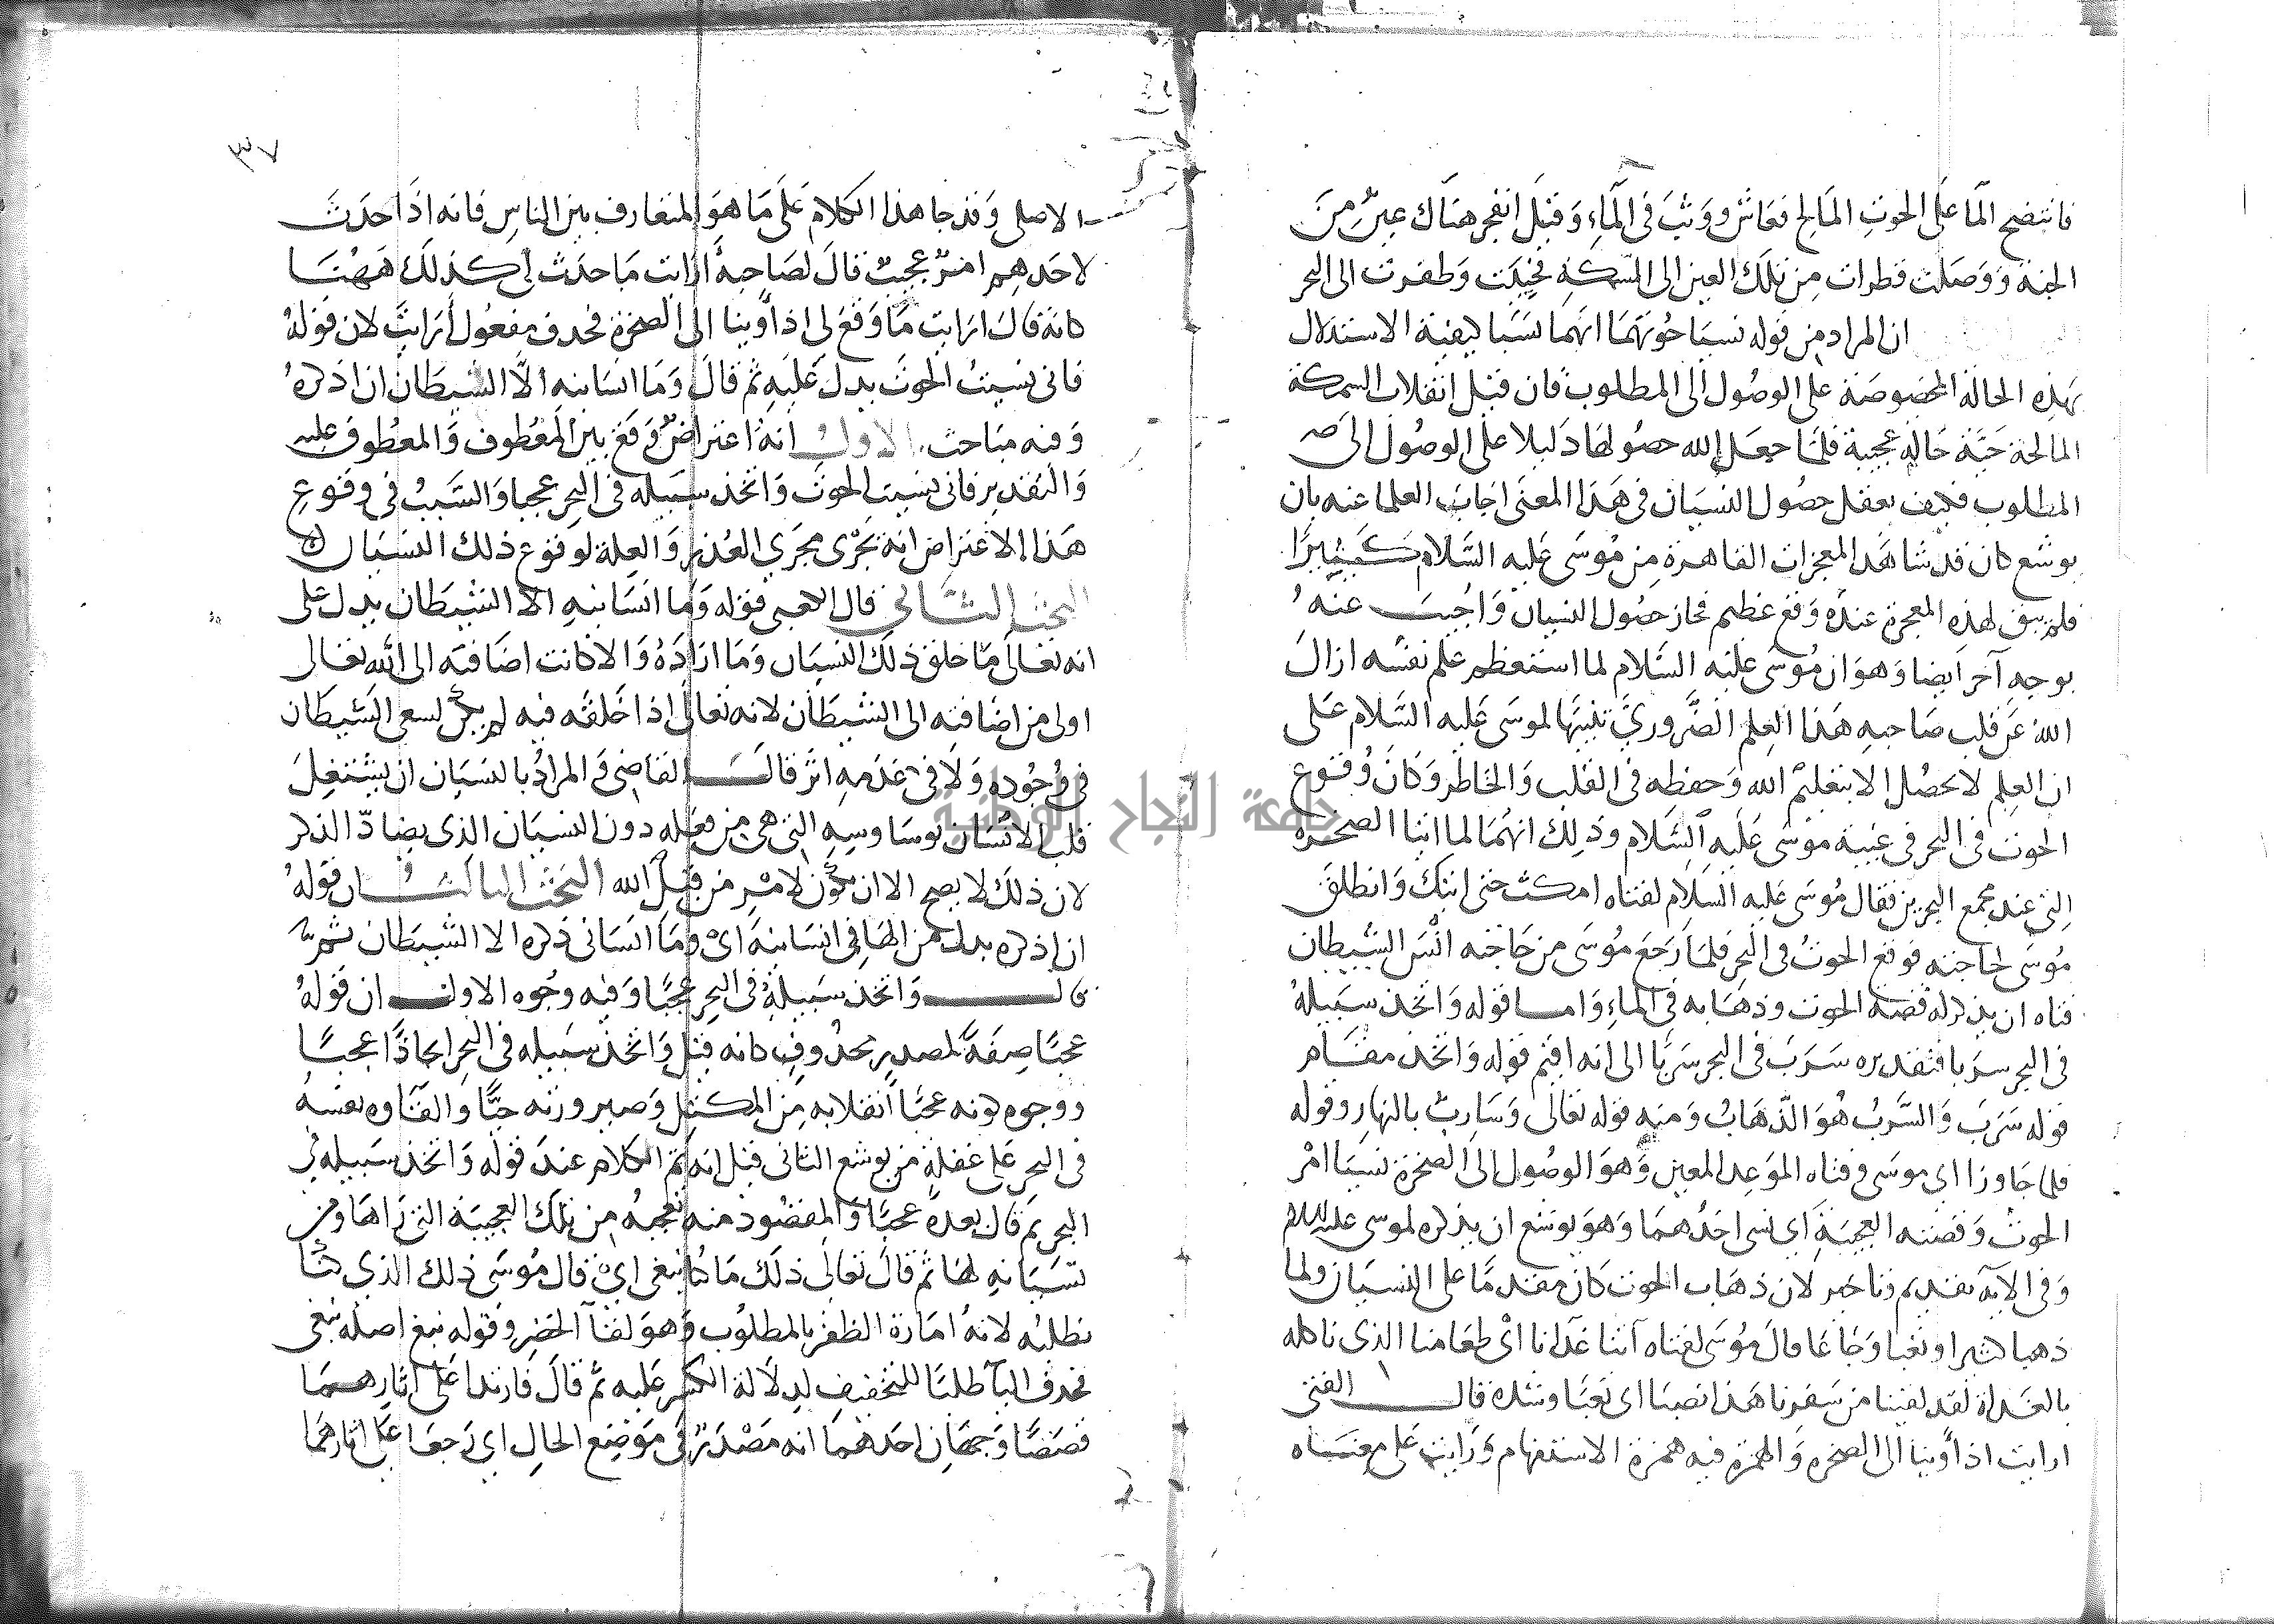 فانتضح الما على الحوت المالح فعاش ووثب في الماء وقيل انفجر هناك عين من
الجنة ووصلت قطرات من تلك العين الى السمكة فحييت وطفرت الى البحر
ان المراد من قوله نسيا حوتهما انهما نسيا كيفية الاستدلال
بهذه الحالة المخصوصة على الوصول الى المطلوب فان قيل انقلاب السمكة
المالحة حية حالة عجيبة فلما جعل الله حصولها دليلا على الوصول الى
المطلوب فكيف يعقل حصول النسيان في هذا المعنى اجاب العلما عنه بان
يوشع كان قد شاهد المعجزات القاهرة من موسى عليه السلام كثيرا
فلم يبق لهذه المعجزة عنده وقع عظيم فجاز حصول النسيان واجيب عنه
بوجه آخر ايضا وهو ان موسى عليه السلام لما استعظم علم نفسه ازال
الله عن قلب صاحبه هذا العلم الضروري تنبيها لموسى عليه السلام على
ان العلم لا يحصل الا بتعليم الله وحفظه في القلب والخاطر وكان وقوع
الحوت في البحر في غيبة موسى عليه السلام وذلك انهما لما اتيا الصخرة
التي عند مجمع البحرين فقال موسى عليه السلام لفتاه امكث حتى اتيك وانطلق
موسى لحاجته فوقع الحوت في البحر فلما رجع موسى من حاجته انس الشيطان
فتاه ان يذكر له قصة الحوت وذهابه في الماء واما قوله واتخذ سبيله
في البحر سربا فتقديره سرب في البحر سربا الى انه اقيم قوله واتخذ مقام
قوله سرب والسرب هو الذهاب ومنه قوله تعالى وسارب بالنهار وقوله
فلما جاوزا اي موسى وفتاه الموعد المعين وهو الوصول الى الصخرة نسيا امر
الحوت وقصته العجيبة اي نسي احدهما وهو يوشع ان يذكره لموسى عليه السلام
وفي الآية تقديم وتاخير لان ذهاب الحوت كان مقدما على النسيان ولما
ذهبا كثيرا وتعبا وجاعا قال موسى لفتاه آتنا غدانا اي طعامنا الذي ناكله
بالغداة لقد لقينا من سفرنا هذا نصبا اي تعبا وشدة قال الفتى
ارايت اذ أوينا الى الصخرة والهمزة فيه همزة الاستفهام ورايت على معناه
٣٧
الاصلي وقد جا هذا الكلام على ما هو المتعارف بين الناس فانه اذا حدث
لاحدهم امر عجيب قال لصاحبه أرايت ما حدث لي كذلك ههنا
كانه قال ارايت ما وقع لي اذ أوينا الى الصخرة فحذف مفعول أرايت لان قوله
فاني نسيت الحوت يدل عليه ثم قال وما انسانيه الا الشيطان ان اذكره
وفيه مباحث الاول انه اعتراض وقع بين المعطوف والمعطوف عليه
والتقدير فاني نسيت الحوت واتخذ سبيله في البحر عجبا والسبب في وقوع
هذا الاعتراض انه يجري مجرى العذر والعلة لوقوع ذلك النسيان
البحث الثاني قال الكعبي قوله وما انسانيه الا الشيطان يدل على
انه تعالى ما خلق ذلك النسيان وما اراده والا كانت اضافته الى الله تعالى
اولى من اضافته الى الشيطان لانه تعالى اذا خلقه فيه لم يكن لسعي الشيطان
في وجوده ولا في عدمه اثر قال القاضي المراد بالنسيان ان يشتغل
قلب الانسان بوساوسه التي هي من فعله دون النسيان الذي يضاد الذكر
لان ذلك لا يصح الا ان يكون لامر من قبل الله البحث الثالث ان قوله
ان اذكره بدل من الها في انسانيه اي وما انساني ذكره الا الشيطان ثم
قال واتخذ سبيله في البحر عجبا وفيه وجوه الاول ان قوله
عجبا صفة لمصدر محذوف كانه قيل واتخذ سبيله في البحر اتخاذا عجبا
ووجوه كونه عجبا انقلابه من المكتل وصيرورته حيا والقاوه نفسه
في البحر على غفلة من يوشع الثاني قيل انه تم الكلام عند قوله واتخذ سبيله في
البحر ثم قال بعده عجبا والمقصود منه تعجبه من تلك العجيبة التي راها ومن
نسيانه لها ثم قال تعالى ذلك ما كنا نبغي اي قال موسى ذلك الذي كنا
نطلبه لانه امارة الظفر بالمطلوب وهو لقآ الخضر وقوله نبغ اصله نبغي
فحذف اليآ طلبا للتخفيف لدلالة الكسر عليه ثم قال فارتدا على اثارهما
قصصا وجهان احدهما انه مصدر في موضع الحال اي رجعا على اثارهما
جامعة النجاح الوطنية